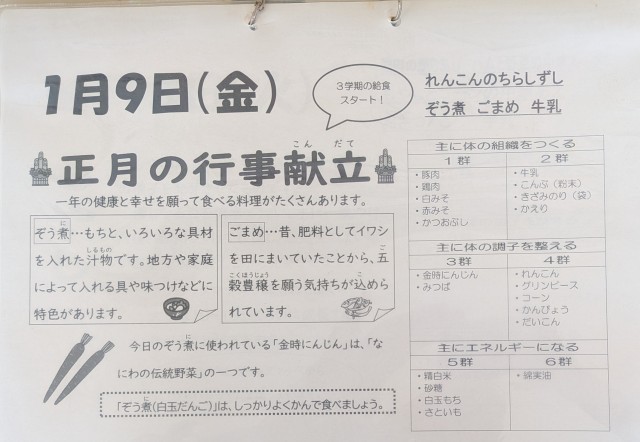 1月9日(金)
3学期の給食
スタート!
れんこんのちらしずし
ぞう煮 ごまめ 牛乳
正月の行事献立
こん だて
一年の健康と幸せを願って食べる料理がたくさんあります。
ぞう煮…もちと、いろいろな具材
を入れた汁物です。地方や家庭
によって入れる具や味つけなどに
特色があります。
ごまめ…昔、肥料としてイワシ
を田にまいていたことから、五
穀豊穣を願う気持ちが込めら
れています。
今日のぞう煮に使われている「金時にんじん」は、「な
にわの伝統野菜」の一つです。
「ぞう煮(白玉だんご)」は、しっかりよくかんで食べましょう。
主に体の組織をつくる
1群 2群
・豚肉
・鶏肉
・白みそ
・赤みそ
・かつおぶし
・牛乳
・こんぶ(粉末)
・きざみのり(袋)
・かえり
主に体の調子を整える
3群 4群
・金時にんじん
・みつば
・れんこん
・グリンピース
・コーン
・かんぴょう
・だいこん
主にエネルギーになる
5群 6群
・精白米
・砂糖
・白玉もち
・さといも
・綿実油